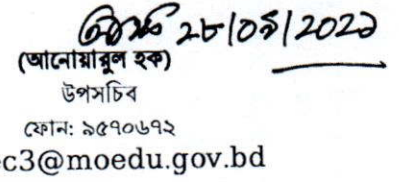 ২৮/০৯/২০২১
(আনোয়ারুল হক)
উপসচিব
ফোন: ৯৫৭০৬৭২
c3@moedu.gov.bd